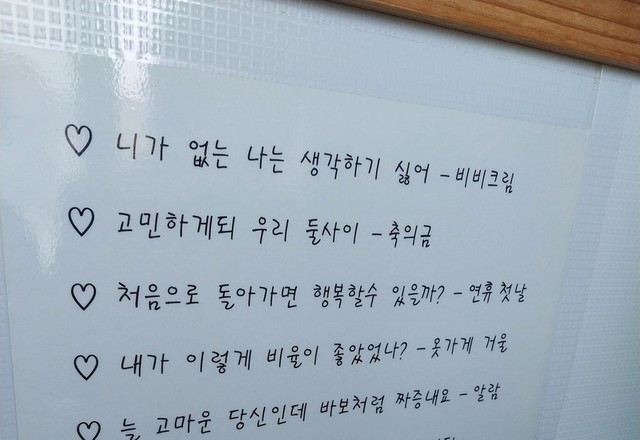 ♡ 니가 없는 나는 생각하기 싫어 - 비비크림
♡ 고민하게되 우리 둘사이 - 축의금
♡ 처음으로 돌아가면 행복할수 있을까? - 연휴 첫날
♡ 내가 이렇게 비율이 좋았었나? - 옷가게 거울
♡ 늘 고마운 당신인데 바보처럼 짜증내요 - 알람